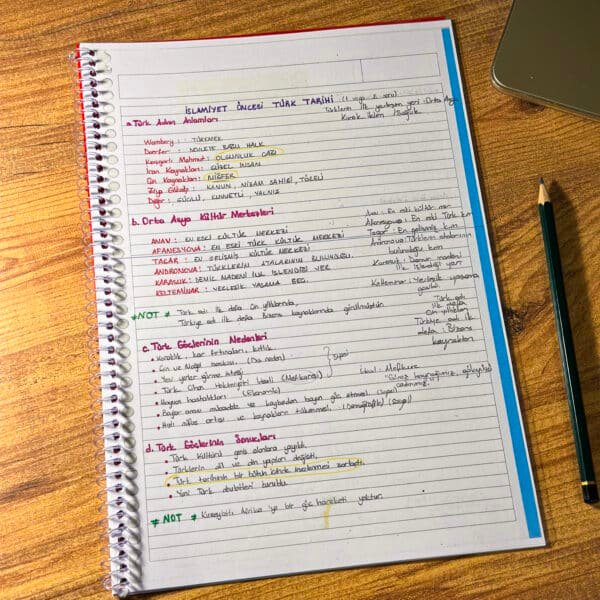 İSLAMİYET ÖNCESİ TÜRK TARİHİ (1 veya 2 soru)
Türklerin ilk yerleşim yeri: Orta Asya
Kurak İklim / Bozkır
a. Türk Adının Anlamları
Wambery: TÜREMEK
Doerfer: DEVLETE BAĞLI HALK
Kaşgarlı Mahmut: OLGUNLUK ÇAĞI
İran Kaynakları: GÜZEL İNSAN
Çin Kaynakları: MİĞFER
Ziya Gökalp: KANUN, NİZAM SAHİBİ, TÖRELİ
Diğer: GÜÇLÜ, KUVVETLİ, YALNIZ
b. Orta Asya Kültür Merkezleri
ANAV: EN ESKİ KÜLTÜR MERKEZİ
AFANESYOVA: EN ESKİ TÜRK KÜLTÜR MERKEZİ
TAGAR: EN GELİŞMİŞ KÜLTÜR MERKEZİ
ANDRONOVA: TÜRKLERİN ATALARININ BULUNDUĞU
KARASUK: DEMİR MADENİ İLK İŞLENDİĞİ YER
KELTEMİNAR: YERLEŞİK YAŞAMA
Anav: En eski kültür mer
Afanesyova: En eski Türk
Tagar: En gelişmiş
Andronova: Türklerin atalarının
bulunduğu
Karasuk: Demir madeni
ilk işlendiği yer
Kelteminar: Yerleşik yaşama
#NOT # Türk adı ilk defa Çin yıllığında,
Türkiye adı ilk defa Bizans kaynaklarında görülmüştür.
Türk adı
ilk defa
Çin yıllığı
Türkiye adı ilk
defa: Bizans
kaynakları
c. Türk Göçlerinin Nedenleri
• Kuraklık, kar fırtınaları, kıtlık
• Çin ve Moğol baskısı. (Dış neden)
• Yeni yerler görme isteği
• Türk Cihan Hakimiyeti İdeali (Mefkuresi)
Siyasi
• Hayvan hastalıkları (Ekonomik)
• Boylar arası mücadele ve kaybeden boyun göç etmesi. (Siyasi)
• Hızlı nüfus artışı ve kaynakların tükenmesi. (Demografik) (Sosyal)
İdeal: Mefkure
"Güneş bayrağımız, gökyüzü
çadırımız."
d. Türk Göçlerinin Sonuçları
• Türk kültürü geniş alanlara yayıldı.
• Türklerin dil ve din yapıları değişti.
• Türk tarihinin bir bütün içinde incelenmesi zorlaştı.
• Yeni Türk devletleri kuruldu.
#NOT # Kuzeybatı Afrika'ya bir göç hareketi yoktur.